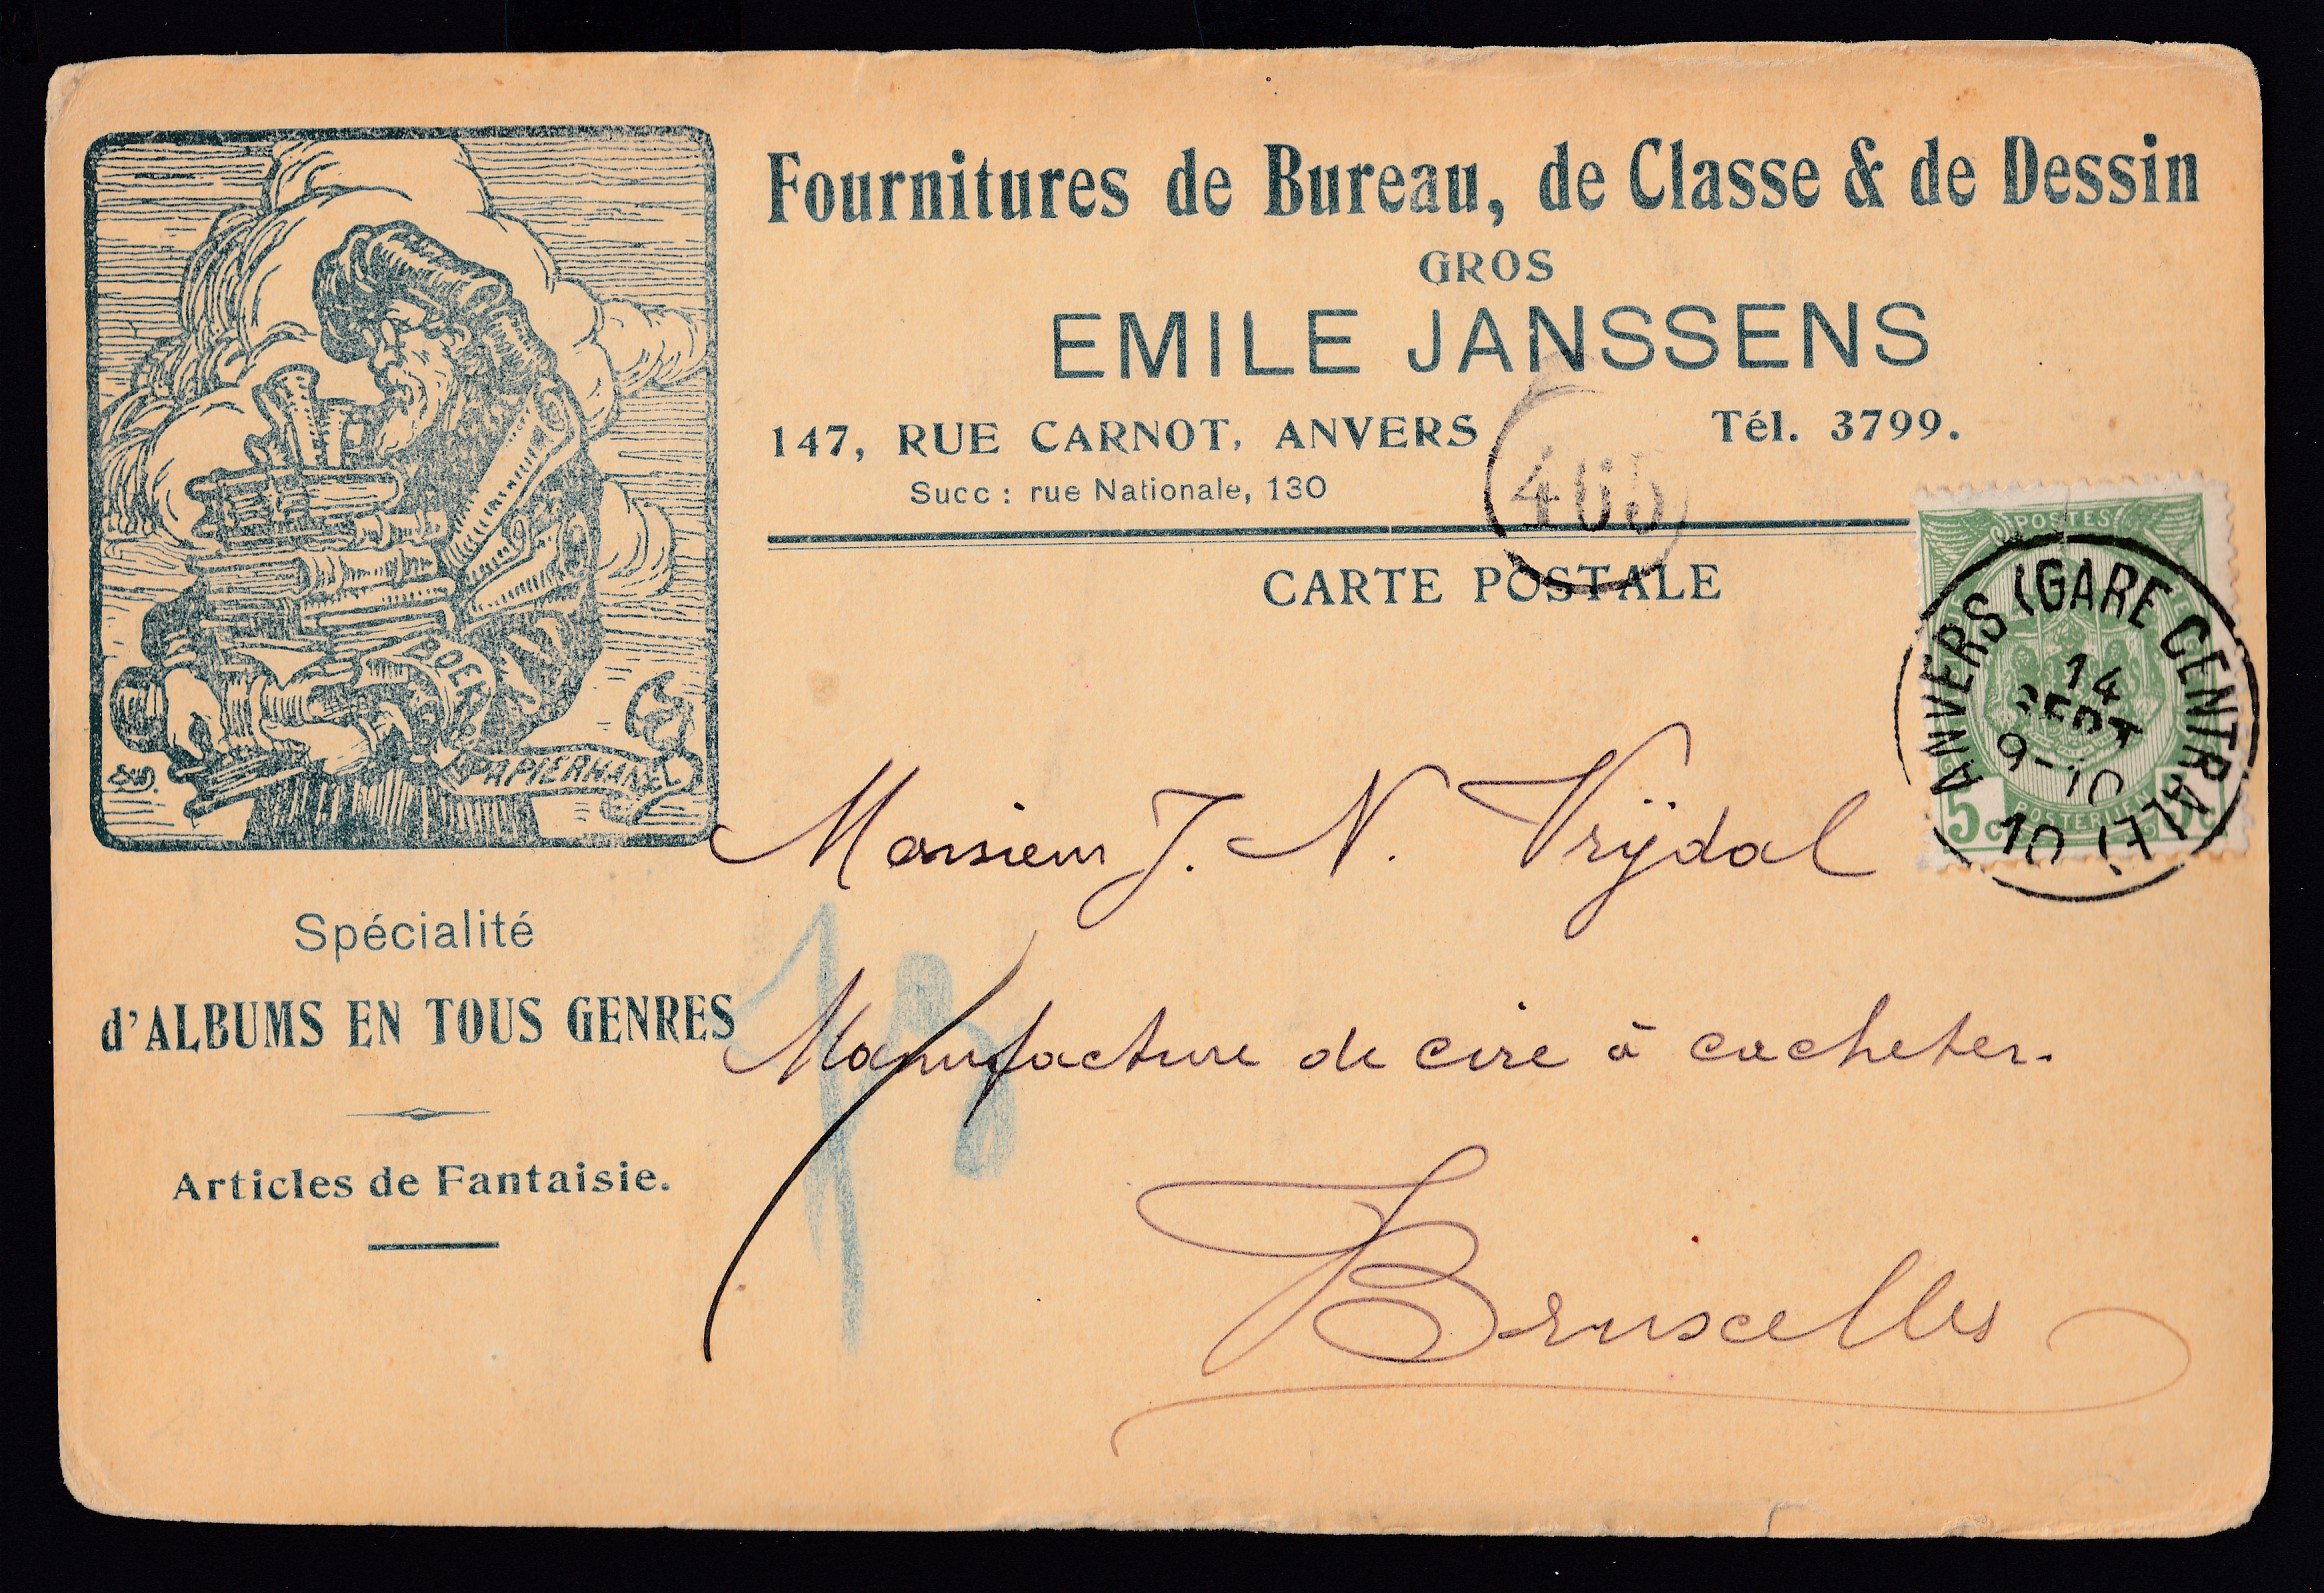 Fournitures de Bureau, de Classe & de Dessin
GROS
EMILE JANSSENS
147, RUE CARNOT, ANVERS Tél. 3799.
Succ : rue Nationale, 130
465
CARTE POSTALE
POSTES
ANVERS (GARE CENTRALE)
14
SEPT
9-10
10
5c
BOEK
PAPIERHANDEL
Spécialité
d'ALBUMS EN TOUS GENRES
Articles de Fantaisie.
Monsieur J. N. Vrÿdal
Manufacture de cire à cacheter.
Bruxelles